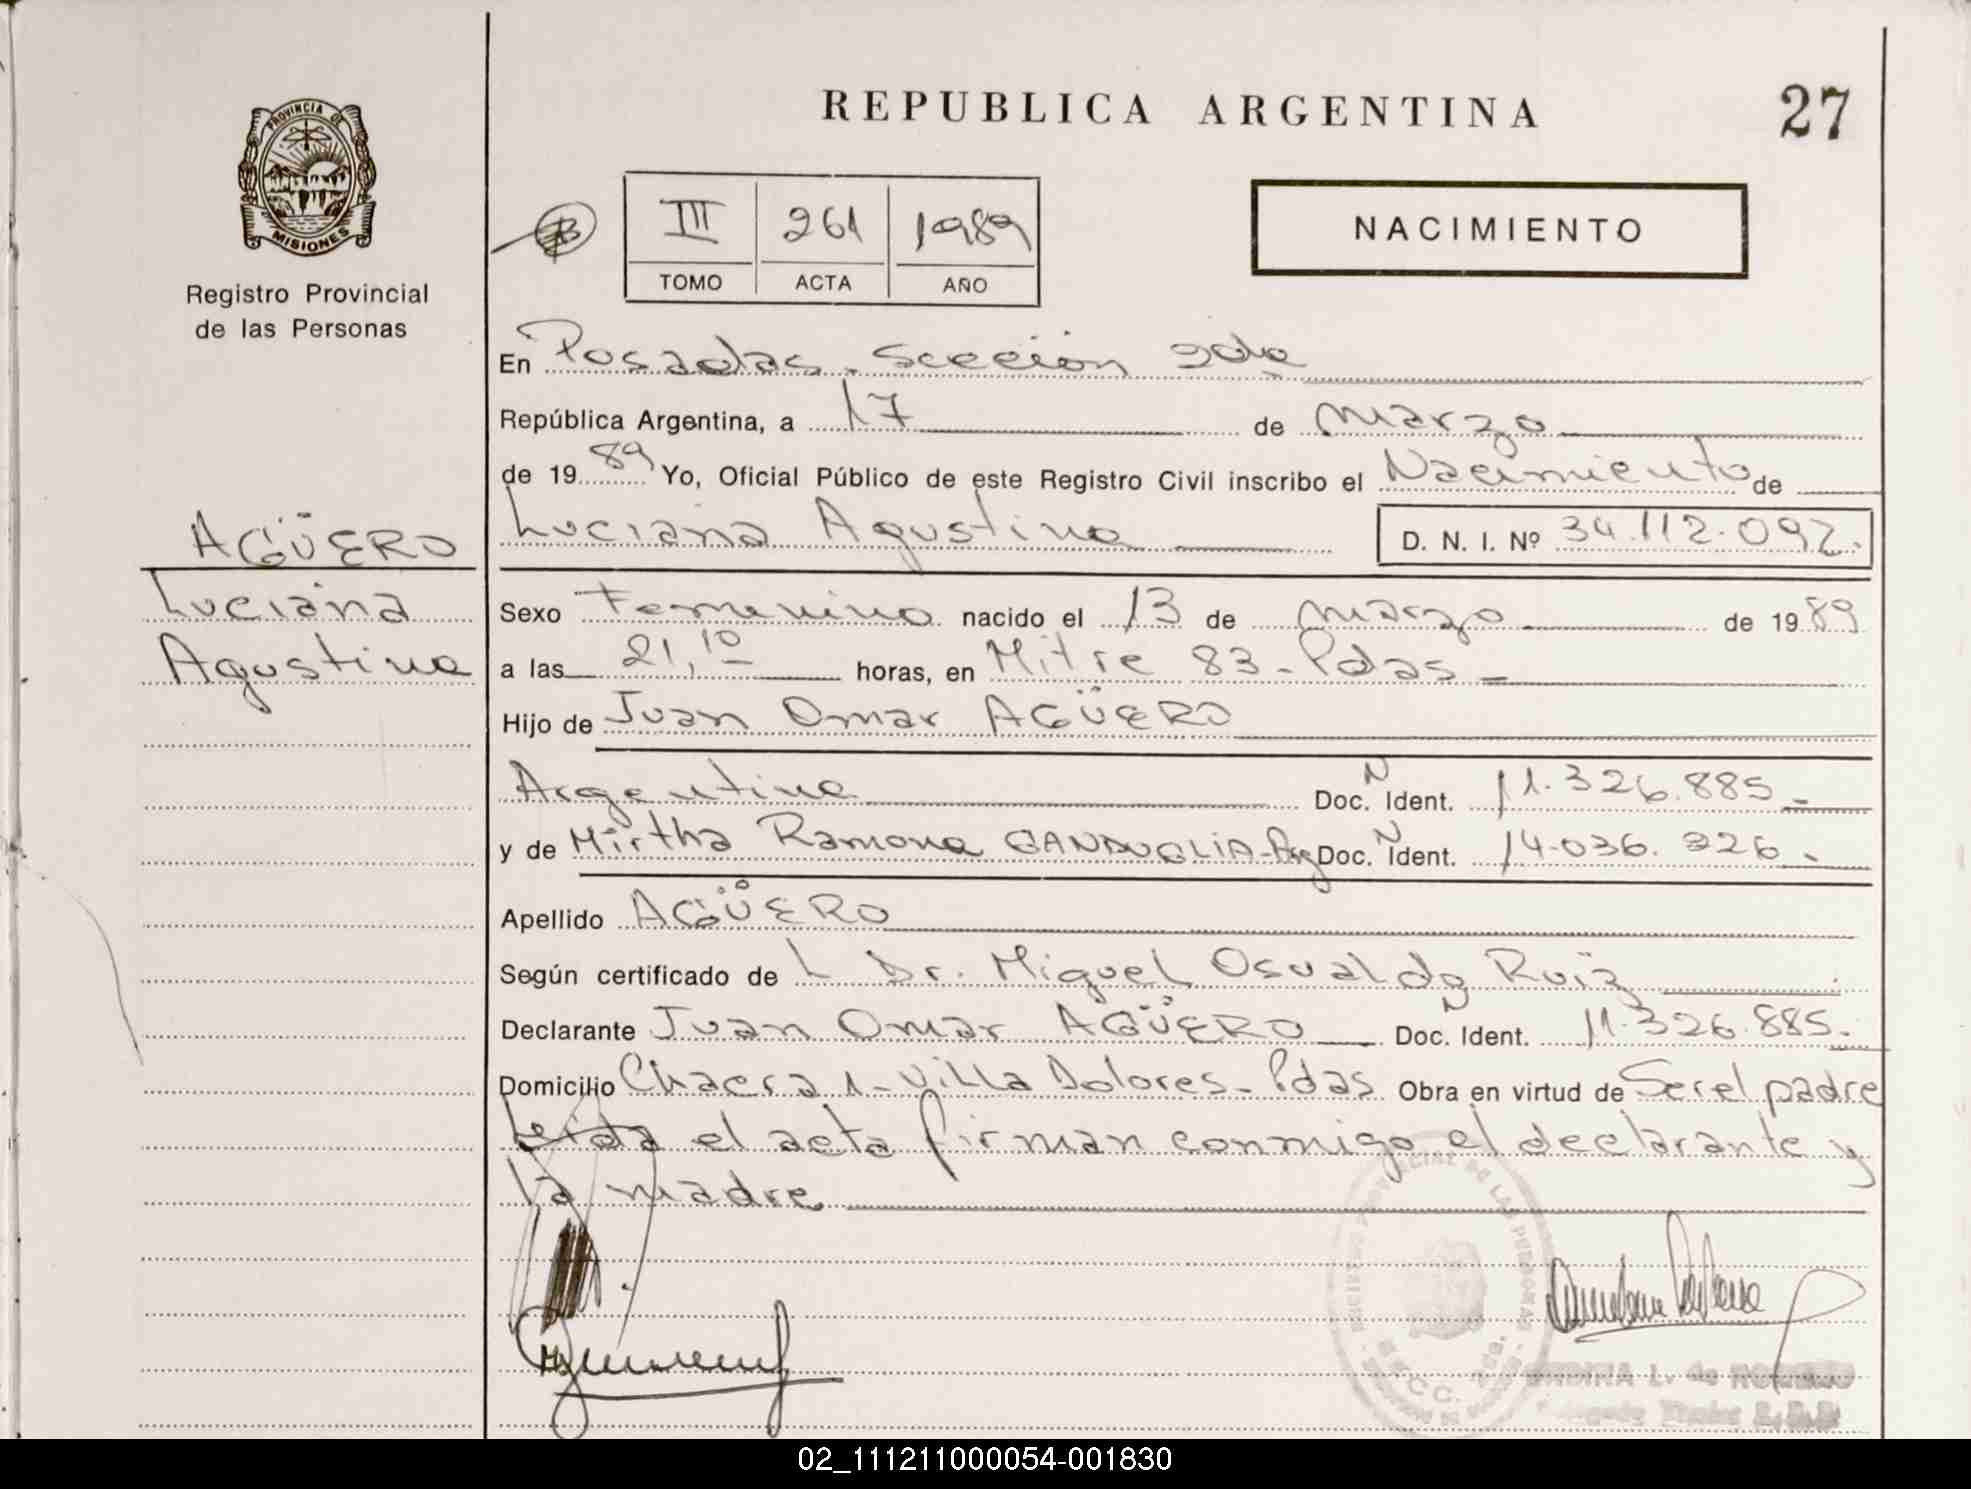 REPUBLICA ARGENTINA
27
PROVINCIA DE
MISIONES
Registro Provincial
de las Personas
III 261 1989
TOMO ACTA AÑO
NACIMIENTO
En Posadas. Sección 2da
República Argentina, a 17 de marzo
de 1989 Yo, Oficial Público de este Registro Civil inscribo el Nacimiento de
Luciana Agustina D. N. I. Nº 34.112.092.
AGÜERO
Luciana
Agustina
Sexo Femenino nacido el 13 de marzo de 1989
a las 21,10 horas, en Mitre 83 - Pdas -
Hijo de Juan Omar AGÜERO
Argentina Doc. N Ident. 11.326.885 -
y de Mirtha Ramona GANDUGLIA - Arg Doc. N Ident. 14.036.326.
Apellido AGÜERO
Según certificado de L Dr. Miguel Osvaldo Ruiz
Declarante Juan Omar AGÜERO Doc. N Ident. 11.326.885.
Domicilio Chacra 1 - Villa Dolores - Pdas Obra en virtud de Ser el padre
Leida el acta firman conmigo el declarante y
la madre
02_111211000054-001830